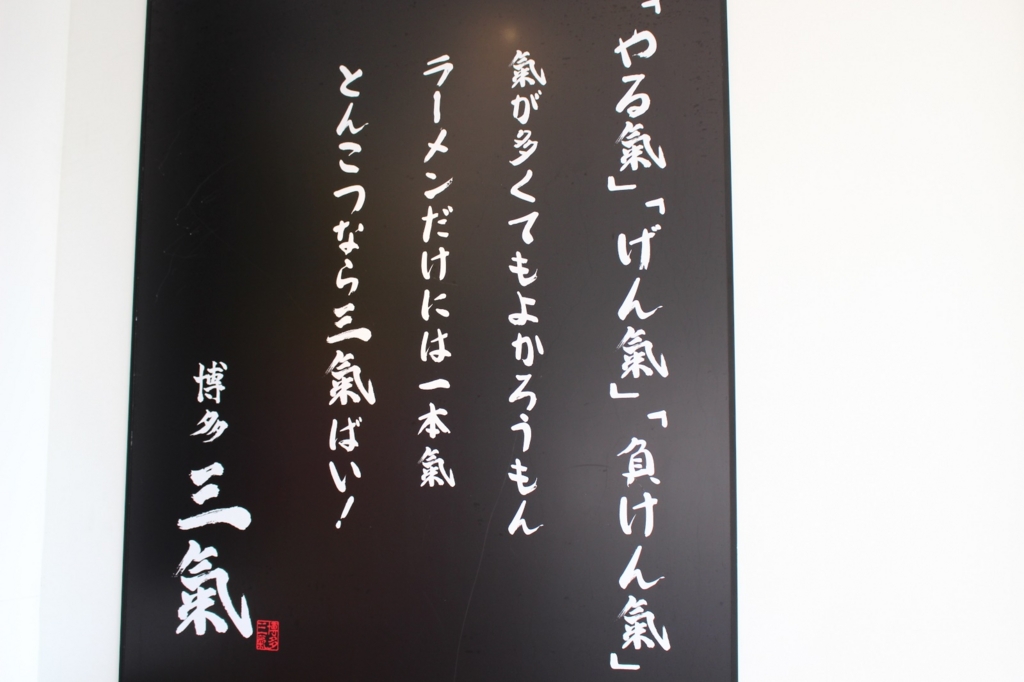 「やる氣」「げん氣」「負けん氣」
氣が多くてもよかろうもん
ラーメンだけには一本氣
とんこつなら三氣ばい!
博多 三氣